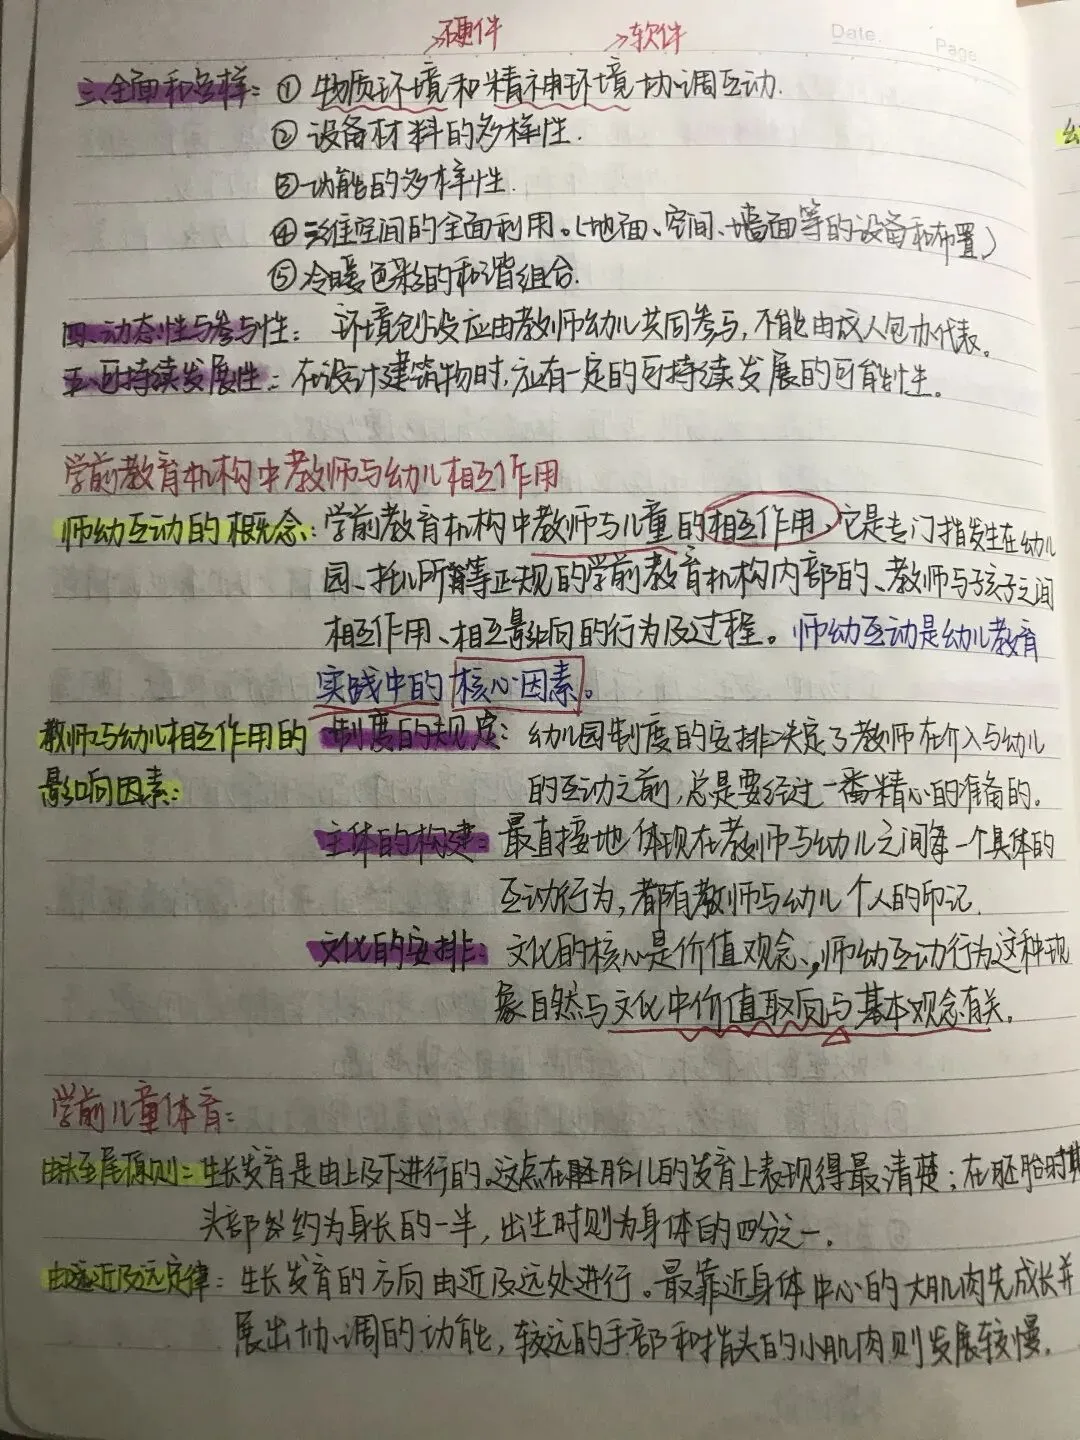 →硬件 →软件 Date. Page
三.全面和多样：①物质环境和精神环境协调互动.
②设备材料的多样性.
③功能的多样性.
④三维空间的全面利用。（地面、空间、墙面等的设备和布置）
⑤冷暖色彩的和谐组合.
四.动态性与参与性： 环境创设应由教师幼儿共同参与，不能由成人包办代表。
五.可持续发展性：在设计建筑物时,应有一定的可持续发展的可能性。
学前教育机构中教师与幼儿相互作用
师幼互动的概念：学前教育机构中教师与儿童的相互作用、它是专门指发生在幼儿
园、托儿所等正规的学前教育机构内部的、教师与孩子之间
相互作用、相互影响的行为及过程。师幼互动是幼儿教育
实践中的核心因素。
教师与幼儿相互作用的 制度的规定：幼儿园制度的安排决定了教师在介入与幼儿
影响因素： 的互动之前，总是要经过一番精心的准备的。
主体的构建：最直接地体现在教师与幼儿之间每一个具体的
互动行为，都有教师与幼儿个人的印记.
文化的安排：文化的核心是价值观念、,师幼互动行为这种现
象自然与文化中价值取向与基本观念有关。
学前儿童体育：
由头至尾原则：生长发育是由上及下进行的。这点在胚胎儿的发育上表现得最清楚；在胚胎时期
头部约为身长的一半，出生时则为身体的四分之一。
由近及远定律：生长发育的方向由近及远处进行。最靠近身体中心的大肌肉先成长并
展出协调的功能，较远的手部和指头的小肌肉则发展较慢.